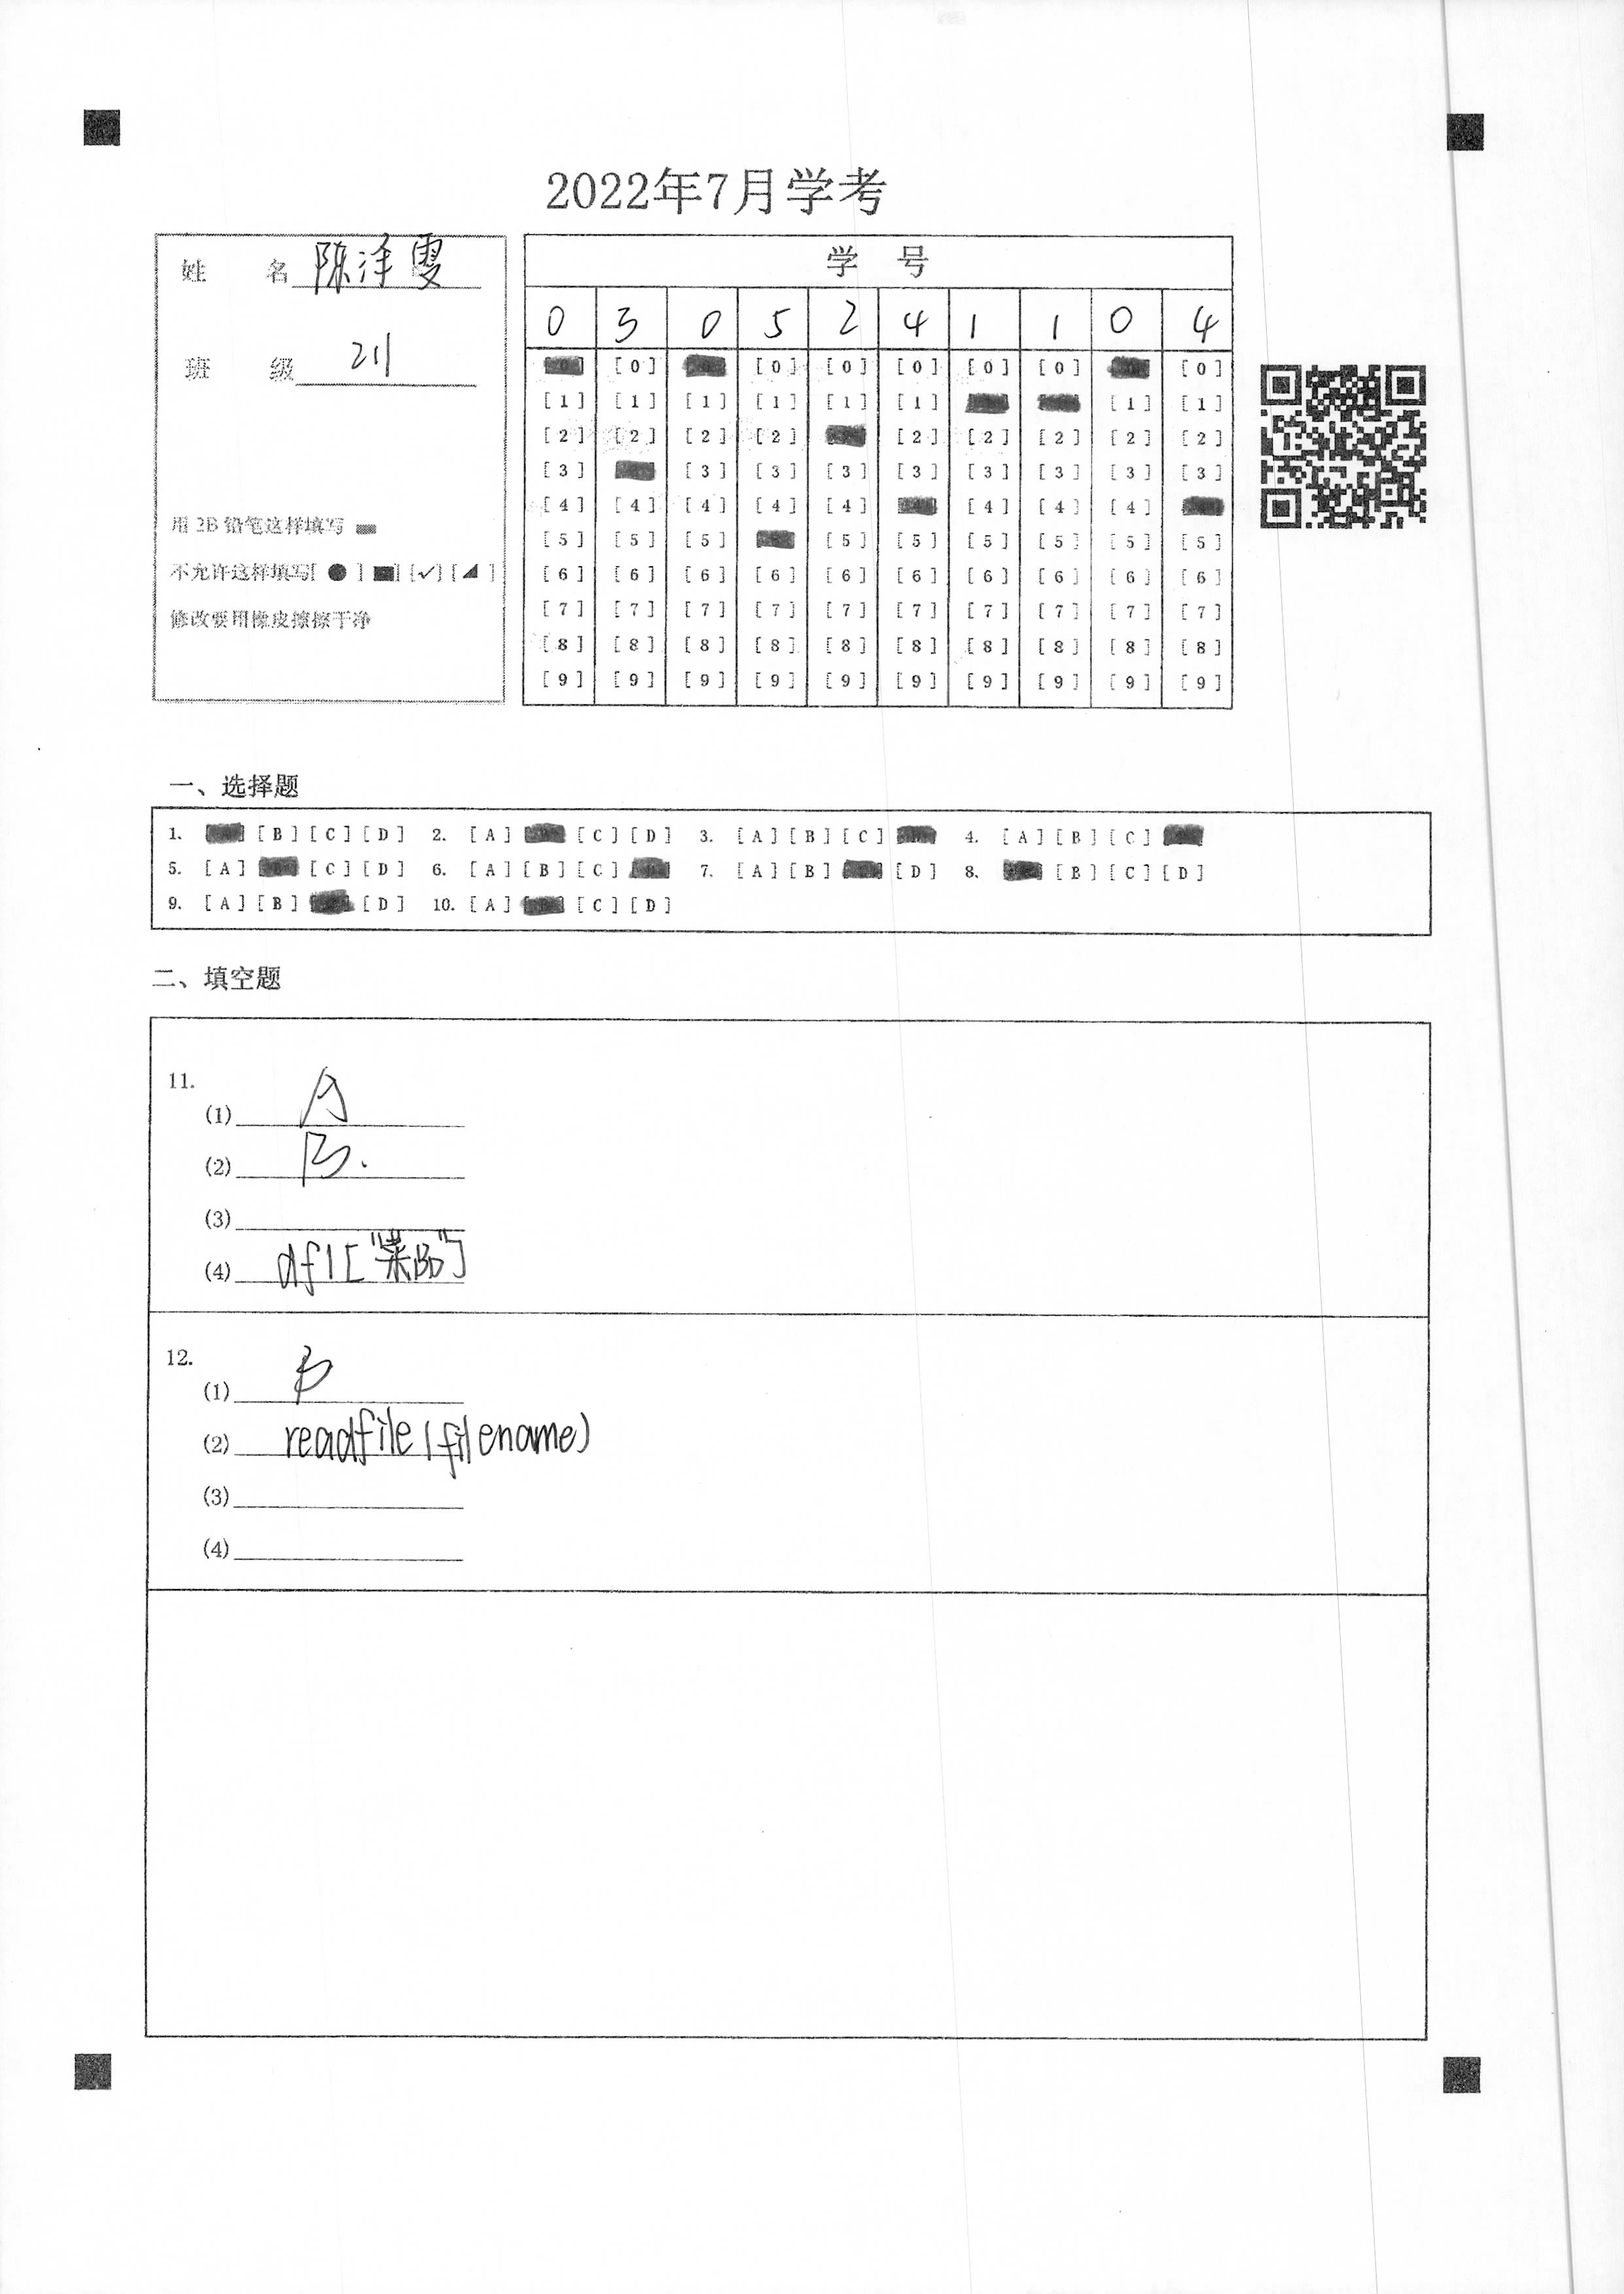 2022年7月学考
姓 名 陈泽雯
班 级 211
用 2B 铅笔这样填写
不允许这样填写[ ● ] [■] [✓] [◢ ]
修改要用橡皮擦擦干净
学 号
0 3 0 5 2 4 1 1 0 4
[0] [0] [0] [0] [0] [0]
[1] [1] [1] [1] [1] [1] [1] [1]
[2] [2] [2] [2] [2] [2] [2] [2] [2]
[3] [3] [3] [3] [3] [3] [3] [3] [3]
[4] [4] [4] [4] [4] [4] [4] [4]
[5] [5] [5] [5] [5] [5] [5] [5] [5]
[6] [6] [6] [6] [6] [6] [6] [6] [6] [6]
[7] [7] [7] [7] [7] [7] [7] [7] [7] [7]
[8] [8] [8] [8] [8] [8] [8] [8] [8] [8]
[9] [9] [9] [9] [9] [9] [9] [9] [9] [9]
一、选择题
1. [B] [C] [D] 2. [A] [C] [D] 3. [A] [B] [C] 4. [A] [B] [C]
5. [A] [C] [D] 6. [A] [B] [C] 7. [A] [B] [D] 8. [B] [C] [D]
9. [A] [B] [D] 10. [A] [C] [D]
二、填空题
11.
(1) A
(2) B.
(3)
(4) df1["菜品"]
12.
(1) B
(2) readfile(filename)
(3)
(4)